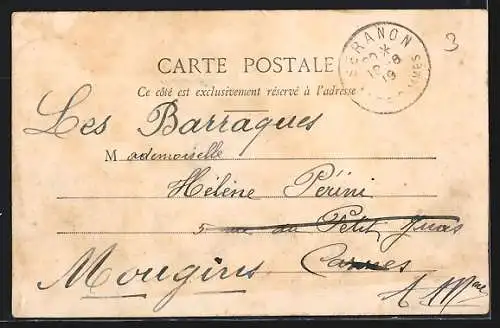 3
SERANON
CARTE POSTALE
Ce côté est exclusivement réservé à l'adresse
Les Barraques
Mademoiselle
Hélène Périni
5 rue du Petit Juas
Mougins Cannes